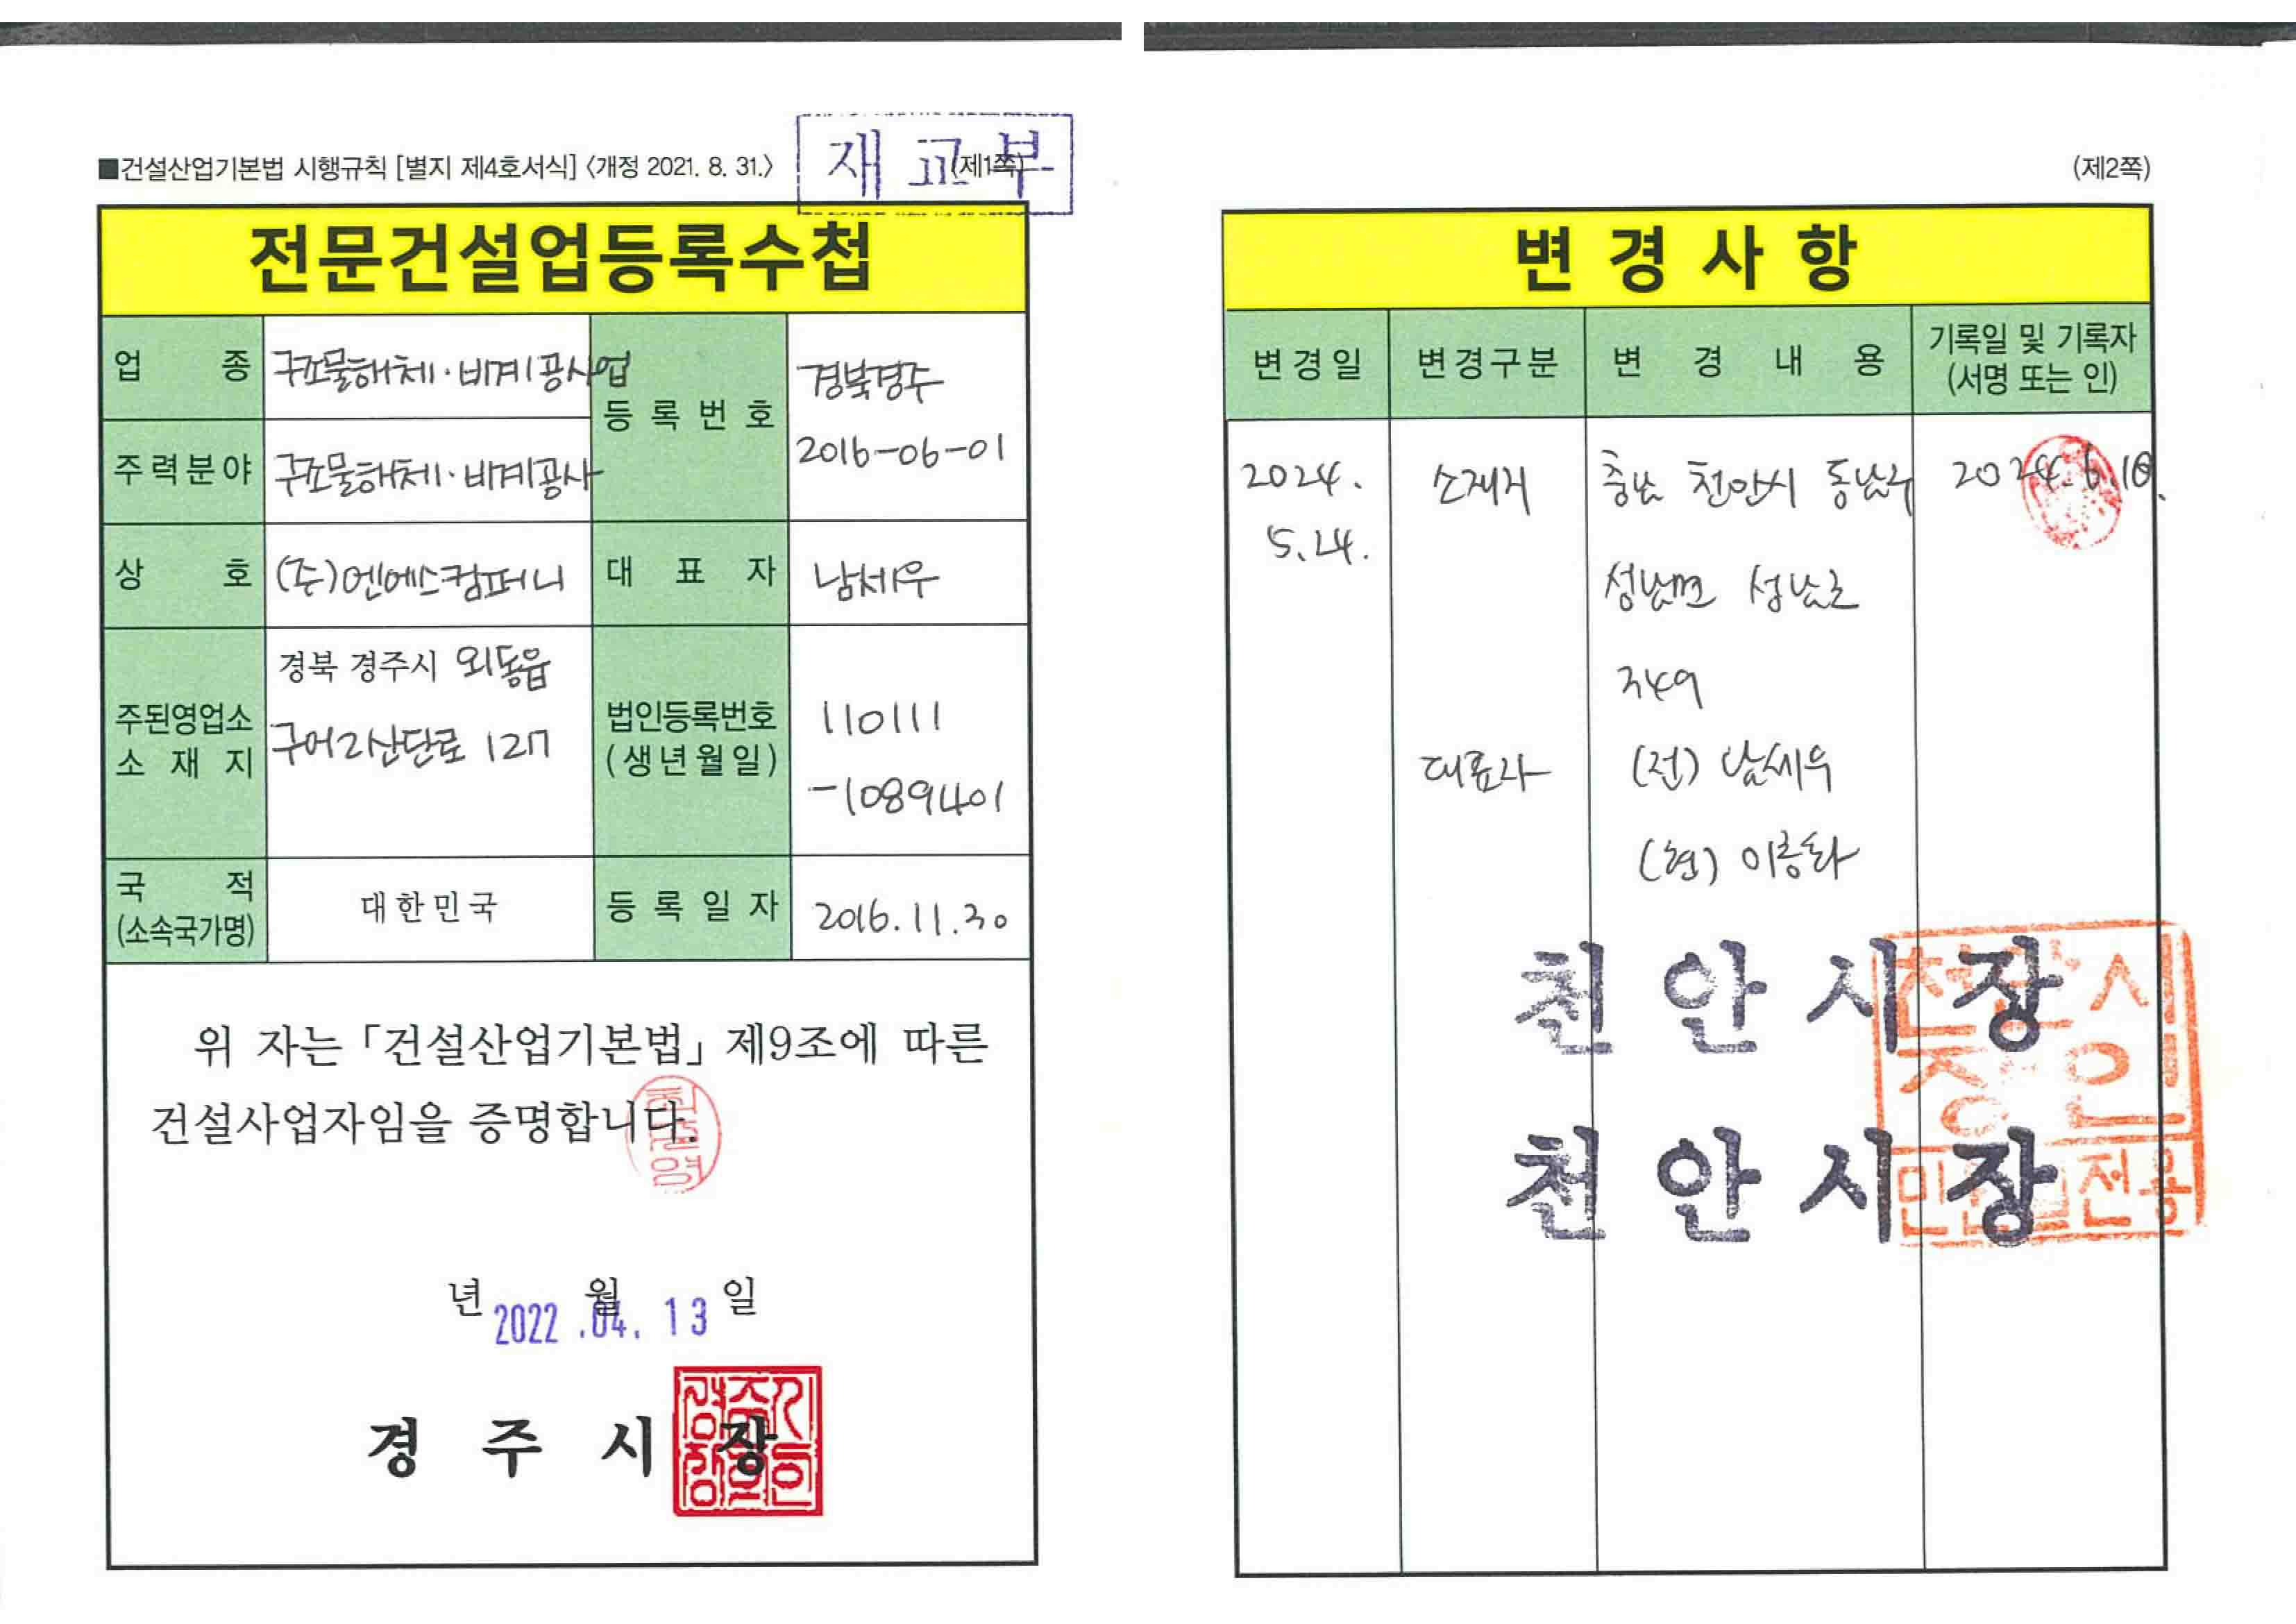 ■건설산업기본법 시행규칙 [별지 제4호서식] <개정 2021. 8. 31.>
(제1쪽)
재교부
전문건설업등록수첩
업 종
구조물해체·비계공사업
등록번호
경북경주
2016-06-01
주력분야
구조물해체·비계공사
상 호
(주)엔에스컴퍼니
대 표 자
남세우
주된영업소
소 재 지
경북 경주시 외동읍
구어2산단로 127
법인등록번호
(생년월일)
110111
-1089401
국 적
(소속국가명)
대한민국
등록일자
2016.11.30
위 자는 「건설산업기본법」 제9조에 따른
건설사업자임을 증명합니다.
년 월 일
2022.04.13
경 주 시 장
(제2쪽)
변경사항
변경일
변경구분
변 경 내 용
기록일 및 기록자
(서명 또는 인)
2024.
5.24.
소재지
충남 천안시 동남구
성남면 성남로
349
2024.6.10.
대표자
(전) 남세우
(현) 이종화
천안시장
천안시장